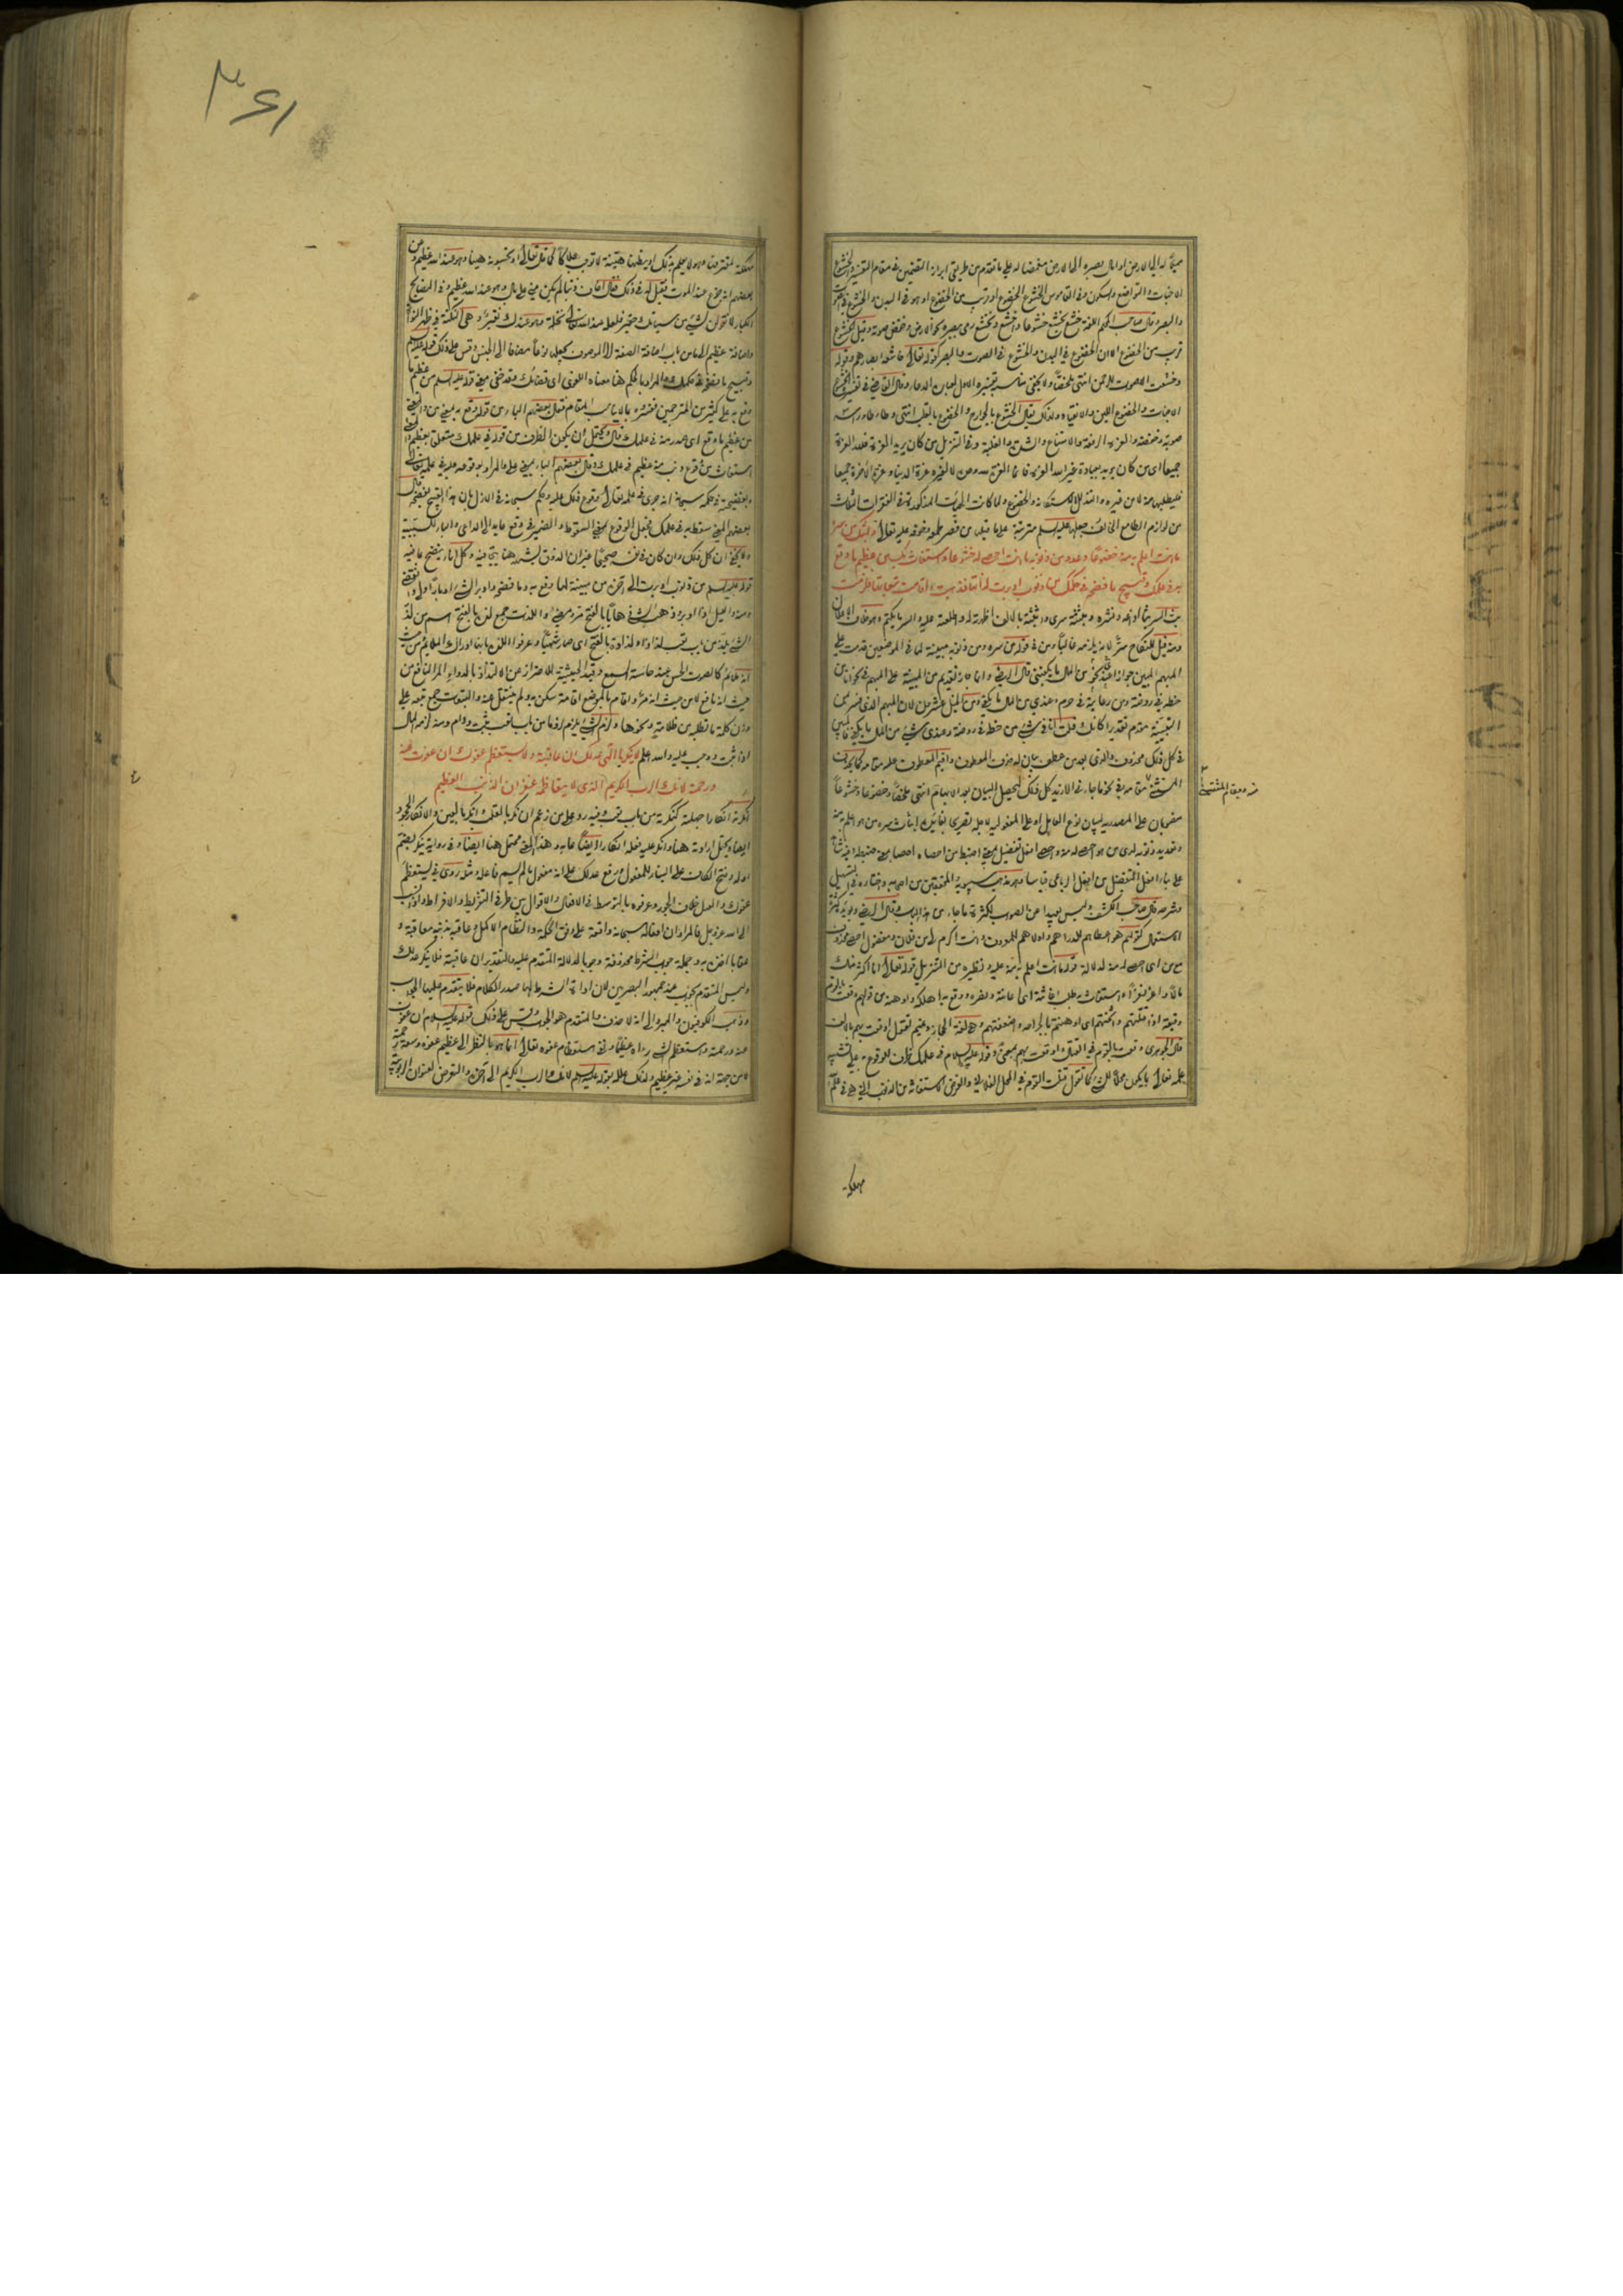 مميلا له إلى الارض او امال بصره الى الارض متخفضا له على ما تقدم من طريقي ارادة الحقيقة في مقام والخشوع
الاخبات والتواضع والسكون وفي القاموس الخشوع الخضوع او قريب من الخضوع او هو في البدن والخشوع في الصوت
والبصر وقال صاحب محكم اللغة خشع يخشع خشوعا واختشع وتخشع رمى ببصره نحو الارض وخفض صوته وقيل الخشوع
قريب من الخضوع الا ان الخضوع في البدن والخشوع في الصوت والبصر كقوله تعالى خاشعة ابصارهم وقوله
وخشعت الاصوات للرحمن انتهى ملخصا ولا يخفى مناسبة تفسيره الاول لعبارة الدعاء وقال القاضي في تفسيره الخشوع
الاخبات والخضوع اللين والانقياد ولذلك يقال الخشوع بالجوارح والخضوع بالقلب انتهى وطأطأ رأسه
صوبه وخفضه والعزة الرفعة والامتناع والشدة والغلبة وفي التنزيل من كان يريد العزة فلله العزة
جميعا اي من كان يريد بعبادة غير الله العزة فانما العزة لله ومن لا لغيره عزة الدنيا وعزة الآخرة جميعا
فليطلبها منه لا من غيره والتذلل الاستكانة والخضوع ولما كانت الهيئات المذكورة في الفقرات الثلاث
من لوازم الطامع الخائف جعلها عليه السلام مترتبة على ما قبلها من قصر طمعه وخوفه عليه تعالى وابثك من سره
ما انت اعلم به منه خضوعا وعدد من ذنوبه ما انت احصى لها خشوعا واستغاث بك من عظيم ما وقع
به في علمك وقبيح ما فضحه في حكمك من ذنوب ادبرت لذاتها فذهبت واقامت تبعاتها فلزمت
بث السر بثا اذاعه ونشره وبثثته سري وابثثته بالالف اظهرته له واطلعته عليه والسر ما يكتم وهو خلاف الاعلان
ومنه قيل للنكاح سر لانه يلزمه غالبا ومن في قوله من سره ومن ذنوبه مبينة لما في الموضعين قدمت على
المبهم المبين جوازا عندي من المال ما يكفيني قال الرضي وانما جاز تقديم من المبينة على المبهم في نحو انا من
خطه في روضة ومن رعايته في حرم وعندي من المال ما يكفي ومن الخيل عشرون لان المبهم الذي فسر بمن
التبيينية مقدم تقديرا كانك قلت انا في شيء من خطه في روضة وعندي شيء من المال ما يكفي فالمبين
في كل ذلك محذوف والذي بعد من عطف بيان له حذف المعطوف واقيم المعطوف عليه مقامه كما يحذف
المستثنى منه ويقام المستثنى
مقامه في نحو ما جاءني الا زيد كل ذلك ليحصل البيان بعد الابهام انتهى ملخصا وخضوعا وخشوعا
منصوبان على المصدرية لبيان نوع العامل او على المفعول لاجله
وتعديد ذنوبه لدى من هو احصى لها منه واحصى افعل تفضيل بمعنى اضبط من احصاه احصاء بمعنى ضبطه
على بناء افعل التفضيل من افعل الرباعي قياسا وهو مذهب سيبويه والمحققين من اصحابه واختاره في التسهيل
وشرحه قال صاحب الكشف وليس بعيدا عن الصواب لكثرة ما جاء من هذا الباب وقال الرضي ويؤيده كثرة
الاستعمال كقولهم هو اعطاهم للدراهم واولاهم للمعروف وانت اكرم لي من فلان ومفضول احصى محذوف
مع من اي احصى لها منه لدلالة قوله ما انت اعلم به منه عليه ونظيره من التنزيل قوله تعالى انا اكثر منك
مالا واعز نفرا واستغاث به طلب اغاثته اي اعانته ونصره ووقع به اهلكه واوهنه من قولهم وقعت بالقوم
وقيعة اذا قتلتهم واثخنتهم اي اوهنتهم بالجراحة واضعفتهم وهي لغة الحجاز وغيرهم تقول اوقعت بهم بالالف
قال الجوهري وقعت بالقوم في القتال واوقعت بهم بمعنى وقوله عليه السلام في علمك ظرف للوقوع على تشبيه
علمه تعالى بما يكون محلا للشيء كما تقول قتلت القوم في المحل الفلاني والغرض الاستغاثة من الذنوب التي هي في علمه
مهلكة
٣٤١
مهلكة لمقترفها وهو لا يعلم بذلك او يظنها هينة لا توجب هلاكا كما قال تعالى وتحسبونه هينا وهو عند الله عظيم وعن
بعضهم انه جزع عند الموت فقيل له في ذلك فقال اخاف ذنبا لم يكن مني على بال وهو عند الله عظيم وفي النصائح
الكبار لا تقولن لشيء من سيئاتك حقير فلعله عند الله نخلة وهو عندك نقير وهي النكتة في ظهر النواة
واضافة عظيم الى ما من باب اضافة الصفة الى الموصوف بجعله نوعا مضافا الى الجنس وقس على ذلك قوله عليه السلام
وقبيح ما فضحه في حكمك والمراد بالحكم هنا معناه اللغوي اي قضائك وقد خفي معنى قوله عليه السلام من عظيم ما
وقع به على كثير من المترجمين ففسروه بما لا يناسب المقام فقال بعضهم الباء من قوله وقع به بمعنى من والمعنى
من عظيم ما وقع اي صدر منه في علمك وقال ويحتمل ان يكون الظرف من قوله في علمك متعلقا بعظيم اي
استغاث من وقوع ذنب منه عظيم في علمك وقال بعضهم الباء بمعنى على والمراد بوقوعه عليه في علمه تعالى
وبفضيحته في حكمه سبحانه انه جرى في علمه تعالى وقوع ذلك عليه وحكم سبحانه في الازل بان هذا القبيح يفضحه وقال
بعضهم المعنى سقط به في علمك بجعل الوقوع بمعنى السقوط والضمير في وقع عائد الى الداعي والباء للسببية
ولا يخفى ان كل ذلك وان كان في نفسه صحيحا غير ان الذوق يشهد هنا
قوله عليه السلام من ذنوب ادبرت الى آخره من مبينة لما وقع به وما فضحه وادبر الشيء ادبارا ولى وانقضى
ومنه والليل اذا ادبر وذهب الشيء ذهابا بالفتح مر ومضى واللذات جمع لذة بالفتح اسم من لذ
الشيء يلذ من باب تعب لذاذا ولذاذة بالفتح اي صار شهيا وعرفوا اللذة بانها ادراك الملائم من حيث
انه ملائم كالصوت الحسن عند حاسة السمع وقيد الحيثية للاحتراز عن الالتذاذ بالدواء المر النافع من
حيث انه نافع لا من حيث انه مر واقام بالموضع اقامة سكن به ولم ينتقل عنه والتبعات جمع تبعة على
وزن كلمة ما تطلبه من ظلامة ونحوها ولزم الشيء يلزم لزوما من باب تعب ثبت ودام ومنه لزمه المال
اذا ثبت ووجب عليه والله اعلم لا ينكر يا الهي عدلك ان عاقبته ولا يستعظم عفوك ان عفوت عنه
ورحمته لانك الرب الكريم الذي لا يتعاظمه غفران الذنب العظيم
نكرته انكارا جهلته كنكرته من باب تعب وفيه رد على من زعم ان نكر بالقلب وانكر بالعين والانكار الجحود
ايضا ويحتمل ارادته هنا وانكر عليه فعله انكارا ايضا عابه وهذا المعنى محتمل هنا ايضا وفي رواية ينكر بضم
اوله وفتح الكاف على البناء للمفعول ورفع عدلك على انه مفعول ما لم يسم فاعله ومثله روى في يستعظم
عفوك والعدل خلاف الجور وعرفوه بالتوسط في الافعال والاقوال بين طرفي التفريط والافراط واذا نسب
الى الله عز وجل فالمراد ان افعاله سبحانه واقعة على وفق الحكمة والنظام الاكمل وعاقبه بذنبه معاقبة و
عقابا اخذه به وجملة جواب الشرط محذوفة وجوبا لدلالة المتقدم عليه والتقدير ان عاقبته فلا ينكر عدلك
وليس المتقدم بجواب عند جمهور البصريين لان اداة الشرط لها صدر الكلام فلا يتقدم عليها الجواب
وذهب الكوفيون والمبرد الى انه لا حذف والمتقدم هو الجواب وقس على ذلك قوله عليه السلام ان عفوت
عنه ورحمته واستعظم الشيء رآه عظيما ونفي استعظام عفوه تعالى انما هو بالنظر الى عظيم عفوه وسعة رحمته
لا من جهة انه في نفسه غير عظيم ولذلك علله بقوله عليه السلام لانك الرب الكريم الى آخره والتعرض لعنوان الربوبية